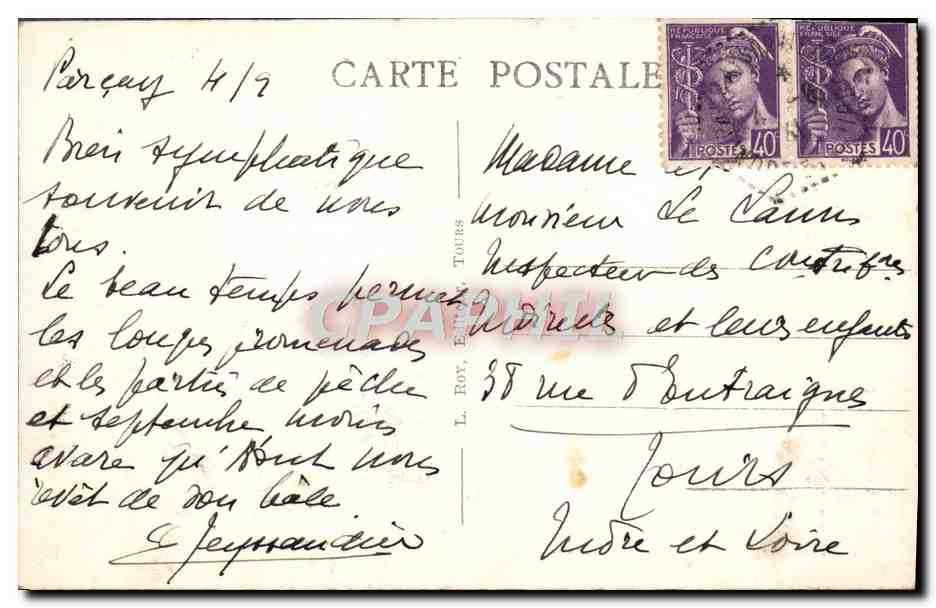 CARTE POSTALE
RÉPUBLIQUE FRANÇAISE
POSTES 40c
RÉPUBLIQUE FRANÇAISE
POSTES 40c
Parçay 4/9
Bien sympathique
souvenir de nous
tous.
Le beau temps permet
les longues promenades
et les parties de pêche
et septembre moins
avare qu'Août nous
revêt de son hâle
L. ROY, Editeur, TOURS
CPAPHIL
Madame et
Monsieur Le
Inspecteur des Contrib.nes
Indirectes et leurs enfants
38 rue d'Entraigues
Tours
Indre et Loire